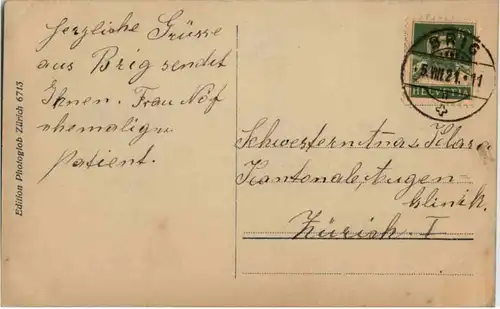 Herzliche Grüsse
aus Brig sendet
Ihnen. Frau Näf
ehemaliger
Patient.
Edition Photoglob Zürich 6713
BRIG
5.VIII.21. 11
HELVETIA
Schwestern Anna & Klara
Kantonale Augen-
klinik.
Zürich. I